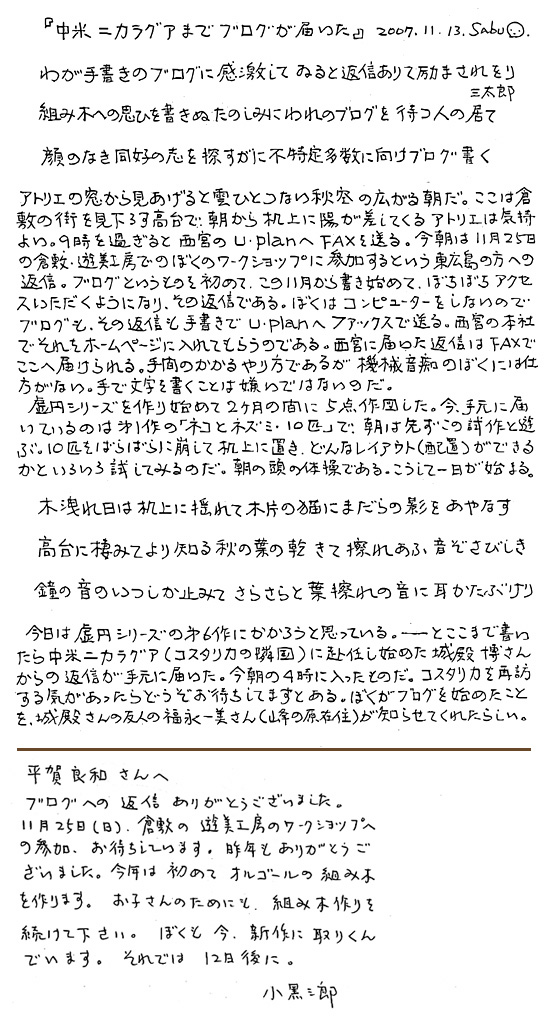 『中米ニカラグアまでブログが届いた』 2007.11.13. Sabu
わが手書きのブログに感激してゐると返信ありて励まされをり
三太郎
組み木への思ひを書きぬたのしみにわれのブログを待つ人の居て
顔のなき同好の志を探すがに不特定多数に向けブログ書く
アトリエの窓から見あげると雲ひとつない秋空の広がる朝だ。ここは倉
敷の街を見下ろす高台で、朝から机上に陽が差してくるアトリエは気持
よい。9時を過ぎると西宮のU・planへFAXを送る。今朝は11月25日
の倉敷・遊美工房でのぼくのワークショップに参加するという東広島の方への
返信。ブログというものを初めて、この11月から書き始めて、ぼろぼろアクセ
スいただくようになり、その返信である。ぼくはコンピューターをしないので
ブログも、その返信も手書きでU・planへファックスで送る。西宮の本社
でそれをホームページに入れてもらうのである。西宮に届いた返信はFAXで
ここへ届けられる。手間のかかるやり方であるが機械音痴のぼくには仕
方がない。手で文字を書くことは嫌いではないのだ。
虚円シリーズを作り始めて2ヶ月の間に5点作図した。今、手元に届
いているのは第1作の「ネコとネズミ・10匹」で、朝は先ずこの試作と遊
ぶ。10匹をばらばらに崩して机上に置き、どんなレイアウト(配置)ができる
かといろいろ試してみるのだ。朝の頭の体操である。こうして一日が始まる。
木洩れ日は机上に揺れて木片の猫にまだらの影をあやなす
高台に棲みてより知る秋の葉の乾きて擦れあふ音ぞさびしき
鐘の音のいつしか止みてさらさらと葉擦れの音に耳かたぶけり
今日は虚円シリーズの第6作にかかろうと思っている。――とここまで書い
たら中米ニカラグア(コスタリカの隣国)に赴任し始めた城殿博さん
からの返信が手元に届いた。今朝の4時に入ったものだ。コスタリカを再訪
する気があったらどうぞお待ちしてますとある。ぼくがブログを始めたこと
を、城殿さんの友人の福永一美さん(峰の原在住)が知らせてくれたらしい。
平賀良和さんへ
ブログへの返信ありがとうございました。
11月25日(日)、倉敷の遊美工房のワークショップへ
の参加、お待ちしています。昨年もありがとうご
ざいました。今年は初めてオルゴールの組み木
を作ります。お子さんのためにも、組み木作りを
続けて下さい。ぼくも今、新作に取りくん
でいます。それでは12日後に。
小黒三郎